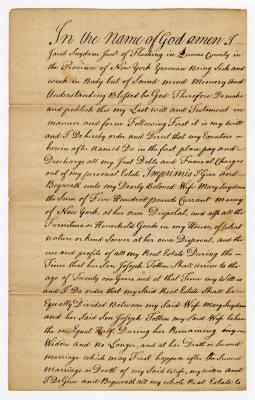 In the Name of God amen I
Jacob Suydam Junr. of Flushing in Queens County in
the Province of New York Yeoman Being Sick and
weak in Body but of Sound mind Memory and
Understanding Blessed be God Therefore Do make
and publish this my Last will and Testament in
manner and form Following First it is my will
and I Do hereby order and Direct that my Executors
herein after named Do in the first place pay and
Discharge all my Just Debts and Funeral Charges
out of my personal Estate Imprimis I Give and
Bequeath unto my Dearly Beloved Wife Mary Suydam
the Sum of Five Hundred pounds Currant money
of New York, at her own Disposal, and also all the
Furniture or Household Goods in my House, of what
nature or kind Soever at her own Disposal, and the
use and profits of all my Real Estate During the
Time that her Son Joseph Totten Shall arrive to the
age of Twenty one Years and at that Time my will is
and I Do order that my Said Real Estate Shall be
Equally Divided Between my Said Wife Mary Suydam
and her Said Son Joseph Totten my Said Wife to have
the one Equal Half During her Remaining my
Widow and no Longer, and at her Death or Second
marriage which may First happen after the Second
marriage or Death of my Said Wife, my will is and
I Do Give and Bequeath all my whole Real Estate to